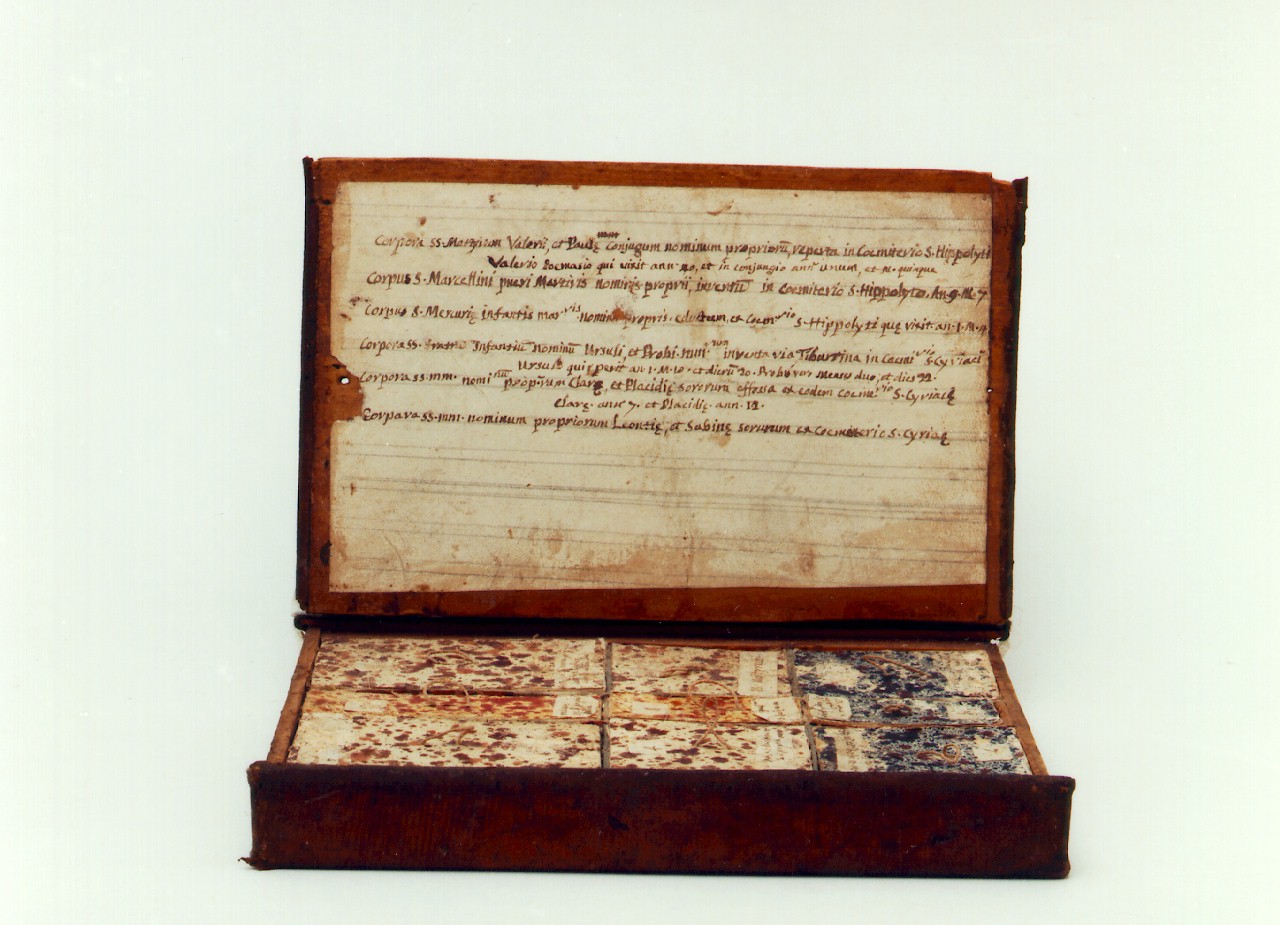 Corpora SS. Martyrum Valerii, et Paulę Conjugum nominum propriorũ, reperta in Coemiterio S. Hippolyti
Valerio qui vixit ann 20, et in conjungio annũ unum, et m. quinque
Corpus S. Marcellini pueri Martiris nominis proprii, inventũ in Coemiterio S. Hippolyto. An. 9. M. 7
Corpus S. Mercurię infantis mar vis nominis propris. eductum, ex Coem rio S. Hippolyti quę vixit an. 1. M. 9.
Corpora SS. Fratrũ Infantiũ nominũ Ursuli, et Probi. inventa via Tiburtina in Coemi rio S. Cyriacę
an. 1. M. 10. et dierũ 20. Probi vero menses duo, et dies 22.
Corpora SS. mm. nomi nũ prop. rum Clarę, et Placidię sororum effossa ex eodem Coeme rio S. Cyriacę
Clarę. ann. 7. et Placidię. ann. 12.
Corpora SS. mm. nominum propriorum Leontię, et Sabinę sorurum ex Coemiterio S. Cyriacę